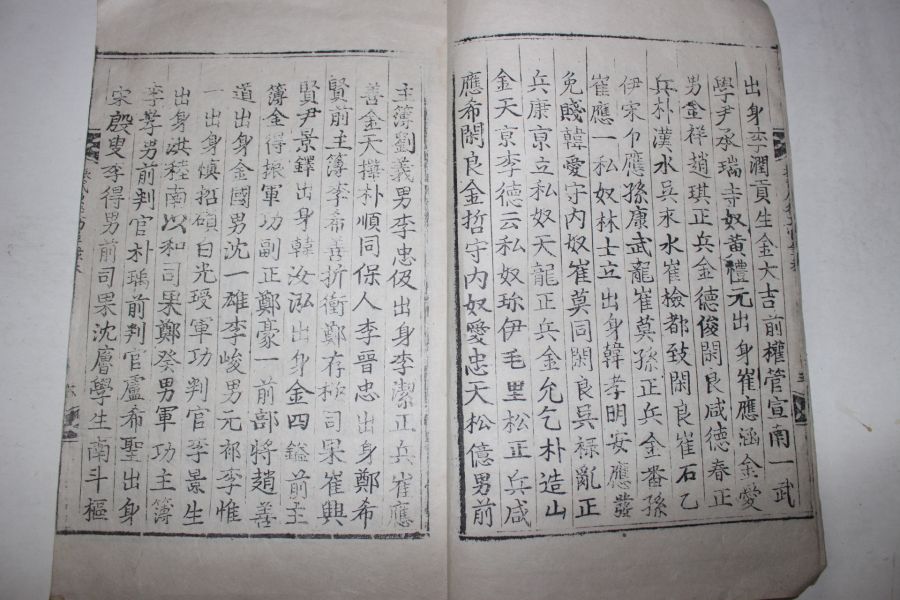 出身李潤貢生金大吉前權管宣南一武
學尹承瑞寺奴黃禮元出身崔應涵金愛
男金祥趙琪正兵金德俊閑良咸德春正
兵朴漢水兵永水崔檢都致閑良崔石乙
伊宋介應孫康武龍崔莫孫正兵金番孫
崔應一私奴林士立出身韓孝明安應發
免賤韓愛守內奴崔莫同閑良吳祿亂正
兵康京立私奴天龍正兵金允乞朴造山
金天京李德云私奴珎伊毛里松正兵咸
應希閑良金哲守內奴愛忠天松億男前
主簿劉義男李忠伋出身李潔正兵崔應
善金天撰朴順同保人李晉忠出身鄭希
賢前主簿李希善折衝鄭存 司果崔興
賢尹景鐸出身韓汝泓出身金四鎰前主
簿金得振軍功副正鄭豪一前部將趙善
道出身金國男沈一雄李峻男元祁李惟
一出身慎招碩白光㻛軍功判官李景生
出身洪 南以和司果鄭癸男軍功主簿
李莘男前判官朴瑀前判官盧希聖出身
宋殷叟李得男前司果沈 學生南斗樞